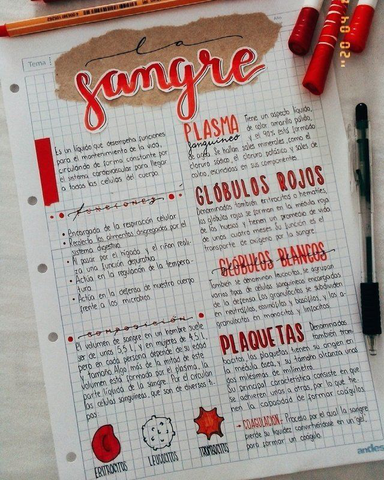 Tema
la
sangre
Es un líquido que desempeña funciones
para el mantenimiento de la vida,
circulando de forma constante por
el sistema cardiovascular para llegar
a todas las células del cuerpo.
funciones
Encargada de la respiración celular.
Recoge los alimentos degradados por el
sistema digestivo.
Al pasar por el hígado y el riñón reali-
za una función depurativa.
Actúa en la regulación de la tempera-
tura.
Actúa en la defensa de nuestro cuerpo
frente a los microbios.
composición
El volumen de sangre en un hombre suele
ser de unos 5,5 l y en mujeres de 4,5 l,
pero en cada persona depende de su edad
y tamaño. Algo más de la mitad de este
volumen está formado por el plasma, la
parte líquida de la sangre. Por él circulan
las células sanguíneas, que son de diversos t.
ERITROCITOS
LEUCOCITOS
TROMBOCITOS
PLASMA
sanguíneo
Tiene un aspecto líquido,
de color amarillo pálido,
y el 90% está formado
de agua. Se hallan sales minerales como el
cloruro sódico, el cloruro potásico y sales de
calcio, en sus componentes.
GLÓBULOS ROJOS
Denominados también eritrocitos o hematíes,
los glóbulos rojos se forman en la médula roja
de los huesos y tienen un promedio de vida
de unos cuatro meses. Su función es el
transporte de oxígeno por la sangre.
GLÓBULOS BLANCOS
También se denominan leucocitos. Se agrupan
varios tipos de células sanguíneas encargadas
de la defensa. Los granulocitos se subdividen
en neutrófilos, eosinófilos y basófilos, y los a-
granulocitos en monocitos y linfocitos.
PLAQUETAS
Denominadas
también trom-
bocitos, las plaquetas tienen su origen en
la médula ósea, y su tamaño alcanza unas
dos milésimas de milímetro.
Su principal característica consiste en que
se adhieren unas a otras, por lo que tie-
nen la capacidad de formar coágulos.
→ COAGULACIÓN: Proceso por el cual la sangre
pierde su liquidez convirtiéndose en un gel,
para formar un coágulo.